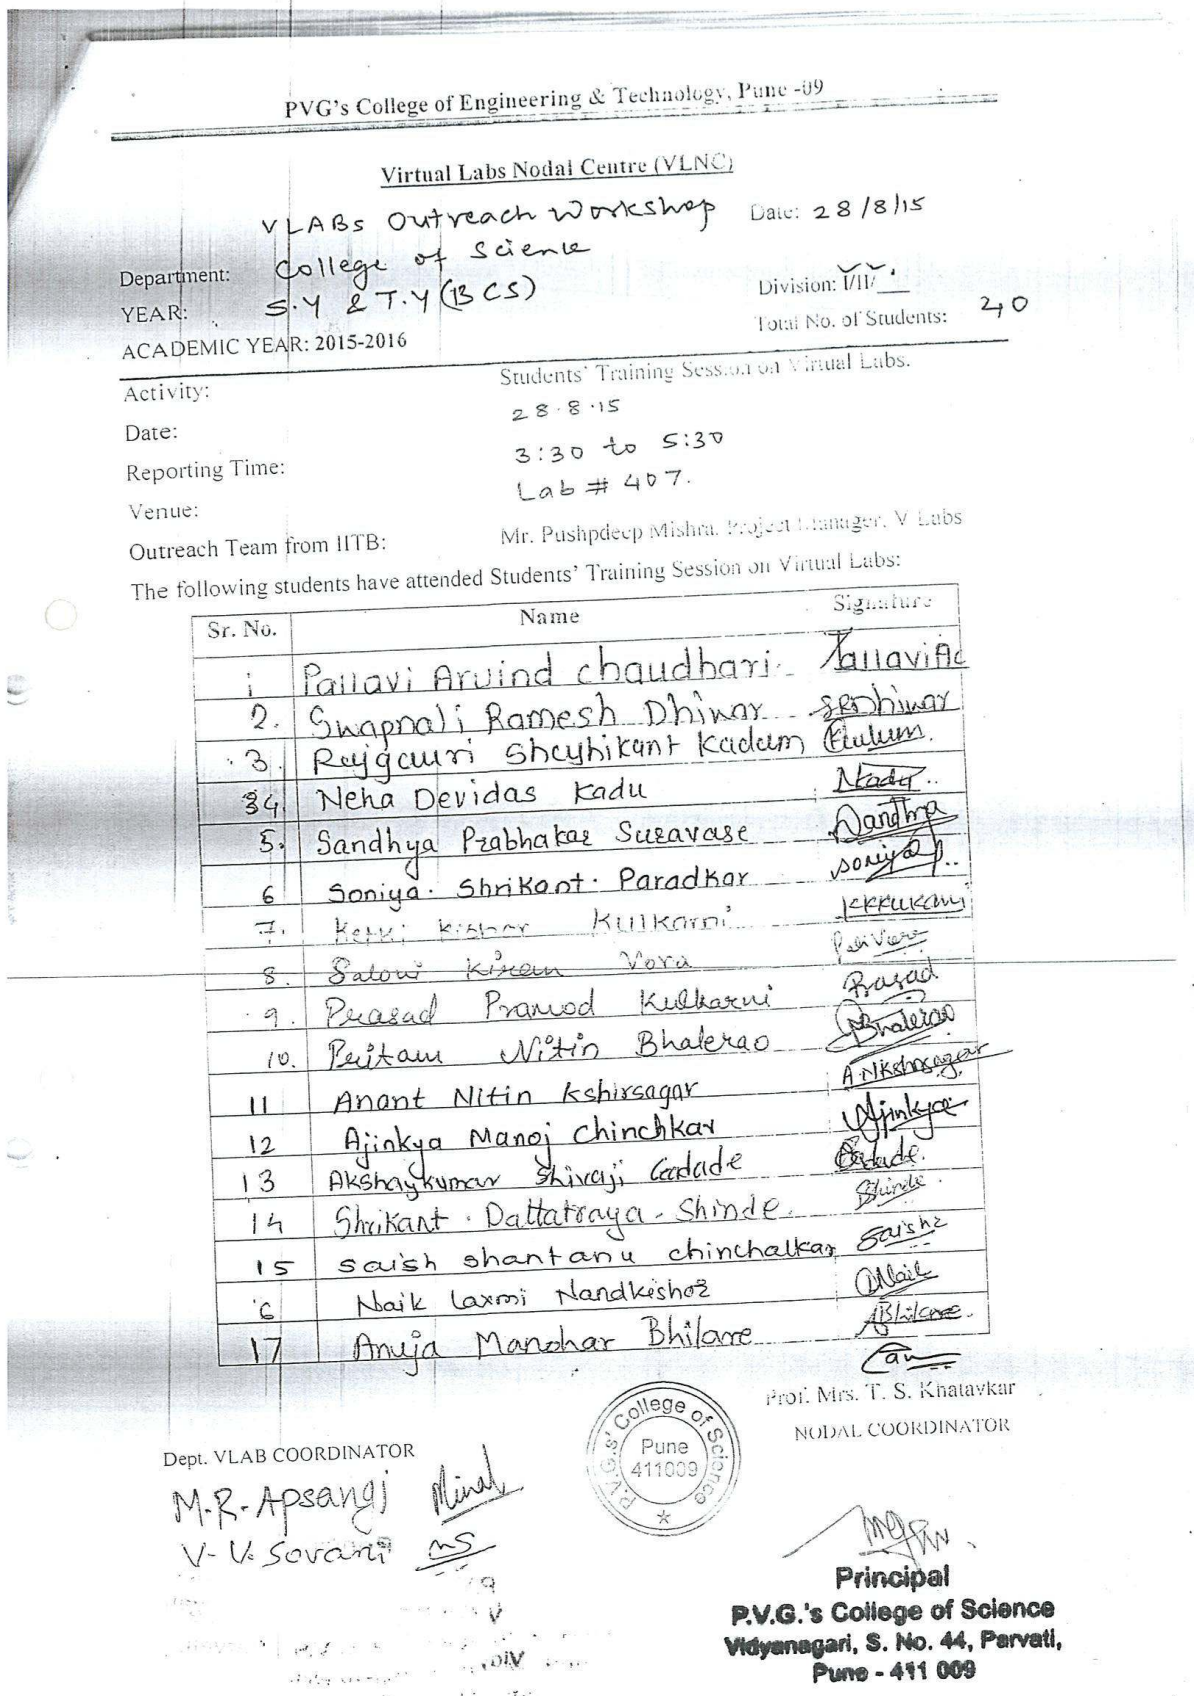 PVG's College of Engineering & Technology, Pune -09
Virtual Labs Nodal Centre (VLNC)
VLABs Outreach Workshop Date: 28/8/15
Department: College of Science
YEAR: S.Y & T.Y (BCS) Division: I/II/
Total No. of Students: 40
ACADEMIC YEAR: 2015-2016
Activity: Students' Training Session on Virtual Labs.
Date: 28.8.15
Reporting Time: 3:30 to 5:30
Venue: Lab # 407.
Outreach Team from IITB: Mr. Pushpdeep Mishra, Project Manager, V Labs
The following students have attended Students' Training Session on Virtual Labs:
Sr. No. Name Signature
1 Pallavi Arvind chaudhari
2. Swapnali Ramesh Dhiwar SRDhiwar
3. Rajgauri Kadam
4 Neha Devidas Kadu NKadu
5. Sandhya Prabhakar Suravase Sandhya
6 Soniya. Shrikant. Paradkar
7. Ketki Kishor Kulkarni KKKulkarni
8. Saloni Kiran Vora
9. Prasad Pramod Kulkarni Prasad
10. Pritam Nitin Bhalerao Bhalerao
11 Anant Nitin Kshirsagar ANKshirsagar
12 Ajinkya Manoj Chinchkar Ajinkya
13 Akshaykumar Shivaji Gadade Gadade.
14 Shrikant. Dattatraya. Shinde. Shinde.
15 saish shantanu chinchalkar
6 Naik laxmi Nandkishor
17 Anuja Manohar Bhilare ABhilare.
Prof. Mrs. T. S. Khatavkar
NODAL COORDINATOR
Dept. VLAB COORDINATOR
M.R. Apsangi Minal
V. V. Sovani
P.V.G.s' College of Science
Pune
411009
Principal
P.V.G.'s College of Science
Vidyanagari, S. No. 44, Parvati,
Pune - 411 009